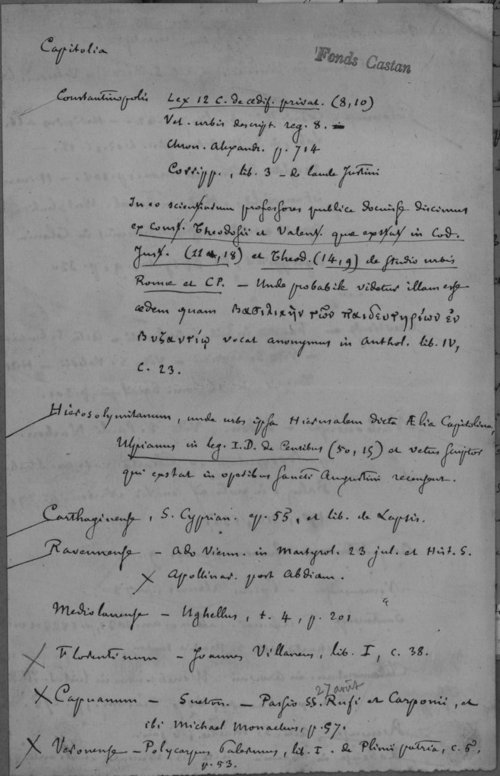 Capitolia
Fonds Castan
Constantinopolis Lex 12 C. de ædif. privat. (8,10)
Vet. urbis descript. reg. 8.
Chron. Alexandr. p. 714
Coripp., lib. 3 – de laude Justini
In eo scientiarum professores publice docuisse discimus
ex const. Theodosii et Valent. quæ exstat in Cod.
Just. (11, 18) et Theod. (14,9) de studio urbis
Romæ et CP. – Unde probabile videtur illam esse
ædem quam Βασιλικὴν τῶν παιδευτηρίων ἐν
Βυζαντίῳ vocat anonymus in Anthol. lib. IV,
C. 23.
Hierosolymitanum, unde urbs ipsa Hierusalem dicta Ælia Capitolina,
Ulpianus in leg. I. D. de Censibus (50, 15) et vetus scriptor
qui exstat in operibus Sancti Augustini recensent.
Carthaginense, S. Cyprian. ep. 55, et lib. de Lapsis.
Ravennense – Ado Vienn. in Martyrol. 23 jul. et Hist. S.
Apollinar. post Abdiam.
Mediolanense – Ughellus, t. 4, p. 201
Florentinum – Joannes Villaneus, lib. I, c. 38.
27 août
Capuanum – Sueton. – Passio SS. Rufi et Carponii, et
ibi Michael Monachus, p. 57.
Veronense – Polycarpus Palermus, lib. I. de Plinii patria, c. 5,
p. 53.